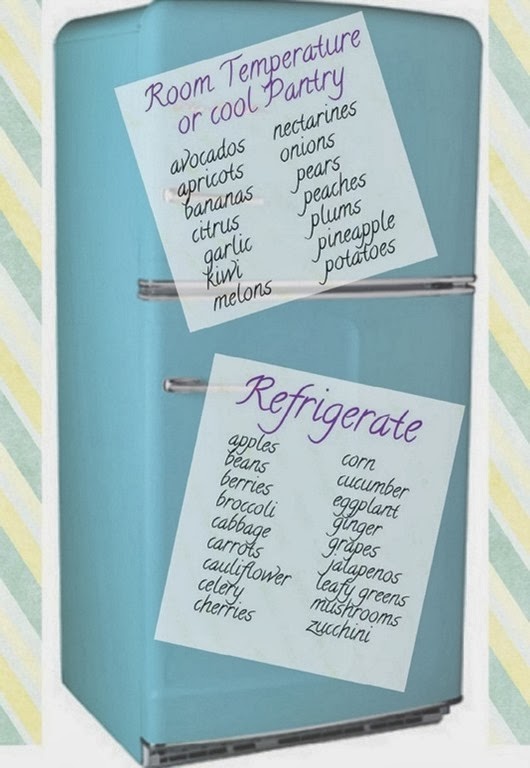 Room Temperature
or cool Pantry
avocados
apricots
bananas
citrus
garlic
kiwi
melons
nectarines
onions
pears
peaches
plums
pineapple
potatoes
Refrigerate
apples
beans
berries
broccoli
cabbage
carrots
cauliflower
celery
cherries
corn
cucumber
eggplant
ginger
grapes
jalapenos
leafy greens
mushrooms
zucchini